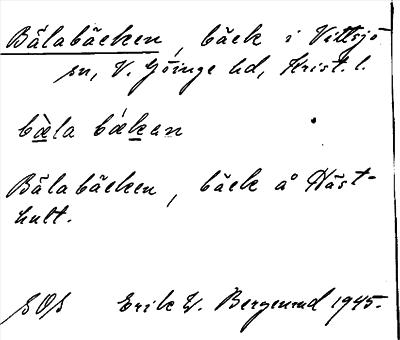 Bälabäcken, bäck i Vittsjö
sn, V. Göinge hd, Krist. l.
bæla bækan
Bälabäcken, bäck å Häst-
hult.
SOS Erik W. Bergenrud 1945.